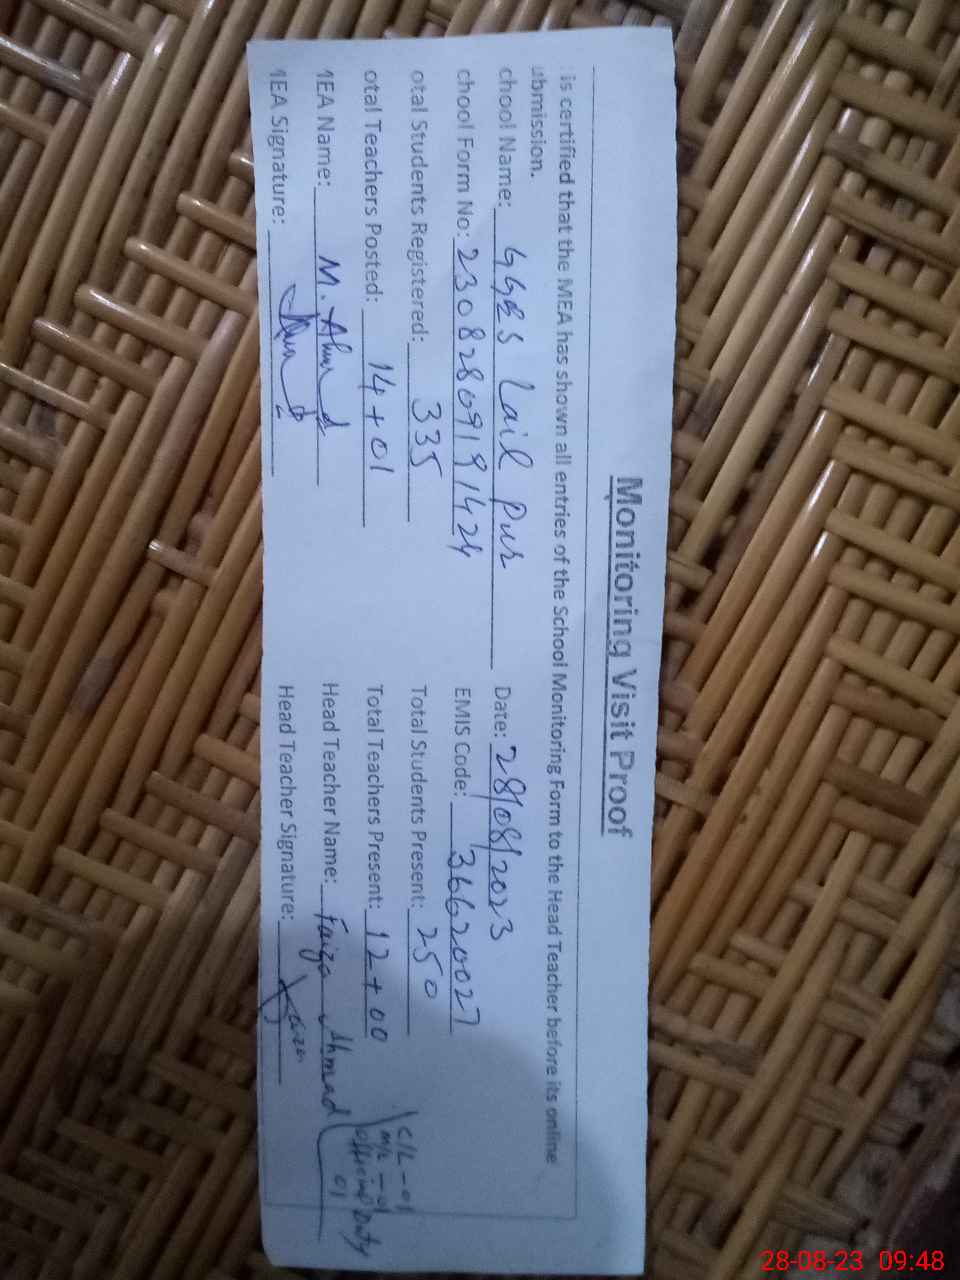 Monitoring Visit Proof
is certified that the MEA has shown all entries of the School Monitoring Form to the Head Teacher before its online
ubmission.
chool Name: GGES Lail Pur Date: 28/08/2023
chool Form No: 23082869191424 EMIS Code: 36620027
otal Students Registered: 335 Total Students Present: 250
otal Teachers Posted: 14+01 Total Teachers Present: 12+00
C/L - 01
M/L - 01
official Duty 01
1EA Name: M. Ahmad Head Teacher Name: Faiza Ahmad
1EA Signature: Head Teacher Signature: Faiza
28-08-23 09:48